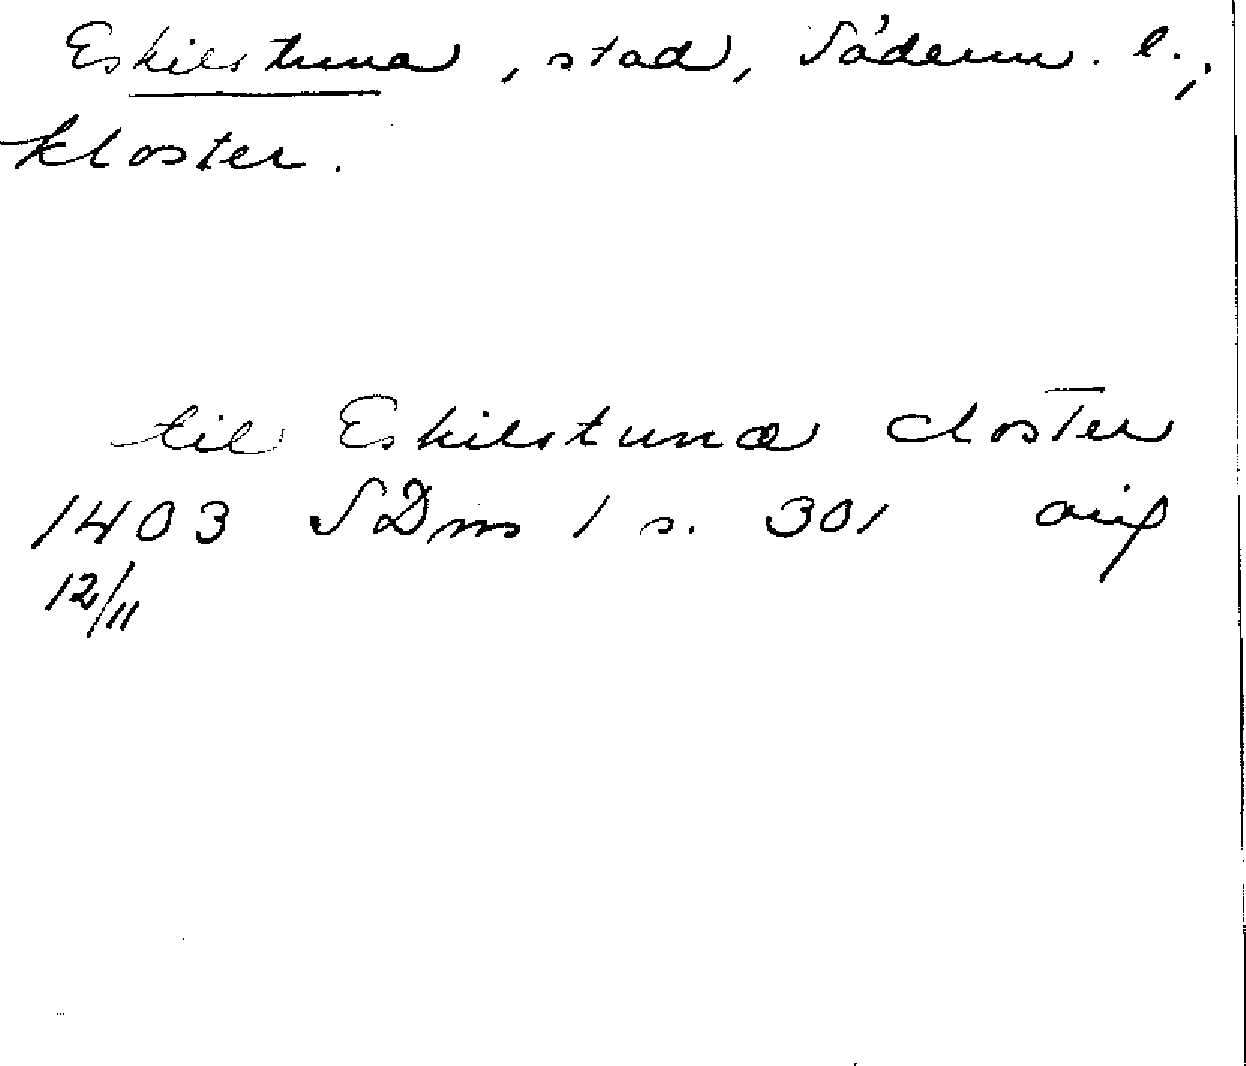 Eskilstuna, stad, Söderm. l.;
kloster.
til Eskilstunæ closter
1403 SDns 1 s. 301 orig
12/11